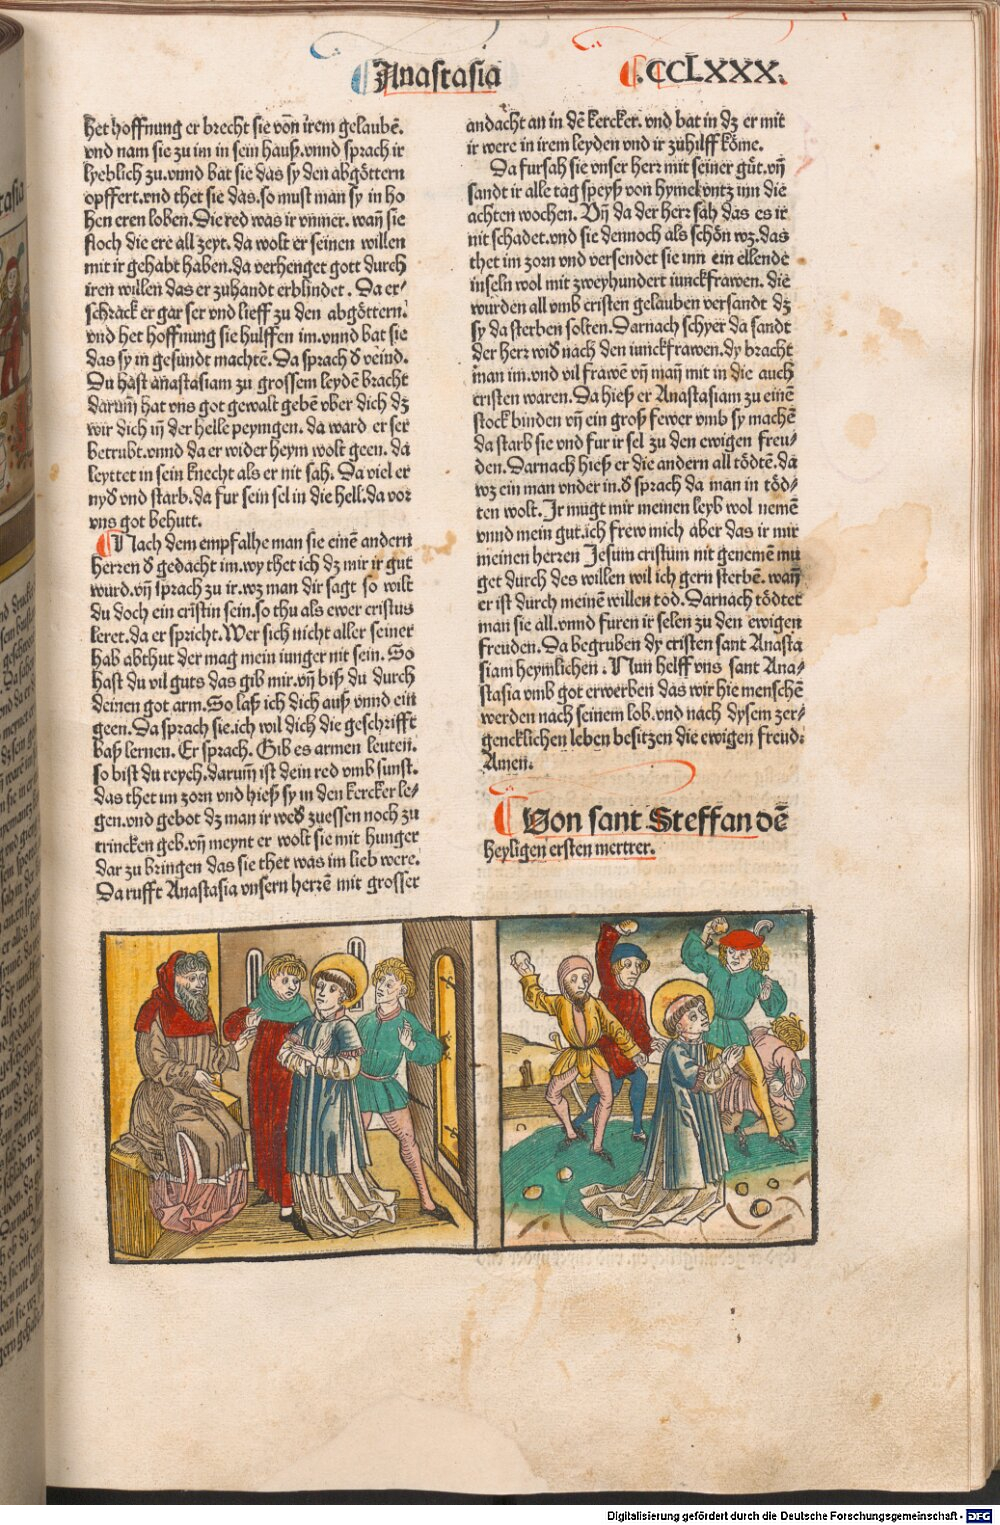 Anastasia
.CCLXXX.
het hoffnung er brecht sie von irem gelaubē.
vnd nam sie zu im in sein hauß.vnnd sprach ir
lyeblich zu.vnnd bat sie das sy den abgöttern
opffert.vnd thet sie das.so must man sy in ho
hen eren loben. Die red was ir vnmer. wañ sie
floch die ere all zeyt. da wolt er seinen willen
mit ir gehabt haben.da verhenget gott durch
iren willen das er zuhandt erblindet. Da er⸗
schrack er gar ser vnd lieff zu den abgöttern.
vnd het hoffnung sie hulffen im.vnnd bat sie
das sy in gesundt machtē. Da sprach ď veind.
Du hast anastasiam zu grossem leydē bracht
darum̃ hat vns got gewalt gebē vber dich dz
wir dich in der helle peynigen. da ward er ser
betrubt.vnnd da er wider heym wolt geen. da
leyttet in sein knecht als er nit sah. Da viel er
nyď vnd starb.da fur sein sel in die hell.da vor
vns got behutt.
Nach dem empfalhe man sie einē andern
herren ď gedacht im.wy thet ich dz mir ir gut
wurd.vñ sprach zu ir.wz man dir sagt so wilt
du doch ein cristin sein.so thu als ewer cristus
leret.da er spricht.Wer sich nicht aller seiner
hab abthut der mag mein iunger nit sein. So
hast du vil guts das gib mir.vñ biß du durch
deinen got arm.So laß ich dich auß vnnd ein
geen. Da sprach sie.ich wil dich die geschrifft
baß lernen. Er sprach. Gib es armen leuten.
so bist du reych.darum̃ ist dein red vmb sunst.
das thet im zorn vnd hieß sy in den kercker le⸗
gen.vnd gebot dz man ir weď zuessen noch zu
trincken geb.vñ meynt er wolt sie mit hunger
dar zu bringen das sie thet was im lieb were.
Da rufft Anastasia vnsern herrē mit grosser
andacht an in dē kercker. vnd bat in dz er mit
ir were in irem leyden vnd ir zuhilff kōme.
Da fursah sie vnser herr mit seiner güt.vñ
sandt ir alle tag speyß von hymel vntz inn die
achten wochen. Vñ da der herr sah das es ir
nit schadet.vnd sie dennoch als schön wz.das
thet im zorn vnd versendet sie inn ein ellende
inseln wol mit zweyhundert iunckfrawen. die
wurden all vmb cristen gelauben versandt dz
sy da sterben solten. Darnach schyer da sandt
der herr wiď nach den iunckfrawen.dy bracht
man im.vnd vil frawē vñ mañ mit in die auch
cristen waren. Da hieß er Anastasiam zu einē
stock binden vñ ein groß fewer vmb sy machē
da starb sie vnd fur ir sel zu den ewigen freu⸗
den. Darnach hieß er die andern all tödtē. da
wz ein man vnder in.ď sprach da man in töd⸗
ten wolt. Ir mügt mir meinen leyb wol nemē
vnnd mein gut.ich frew mich aber das ir mir
meinen herren Jesum cristum nit genemē mü
get durch des willen wil ich gern sterbē. wañ
er ist durch meinē willen tod. Darnach tödtet
man sie all.vnnd furen ir selen zu den ewigen
freuden. Da begruben dy cristen sant Anasta
siam heymlichen. Nun helff vns sant Ana⸗
stasia vmb got erwerben das wir hie menschē
werden nach seinem lob.vnd nach dysem zer⸗
gencklichen leben besitzen die ewigen freud.
Amen.
Von sant Steffan dē
heyligen ersten mertrer.
Digitalisierung gefördert durch die Deutsche Forschungsgemeinschaft - DFG